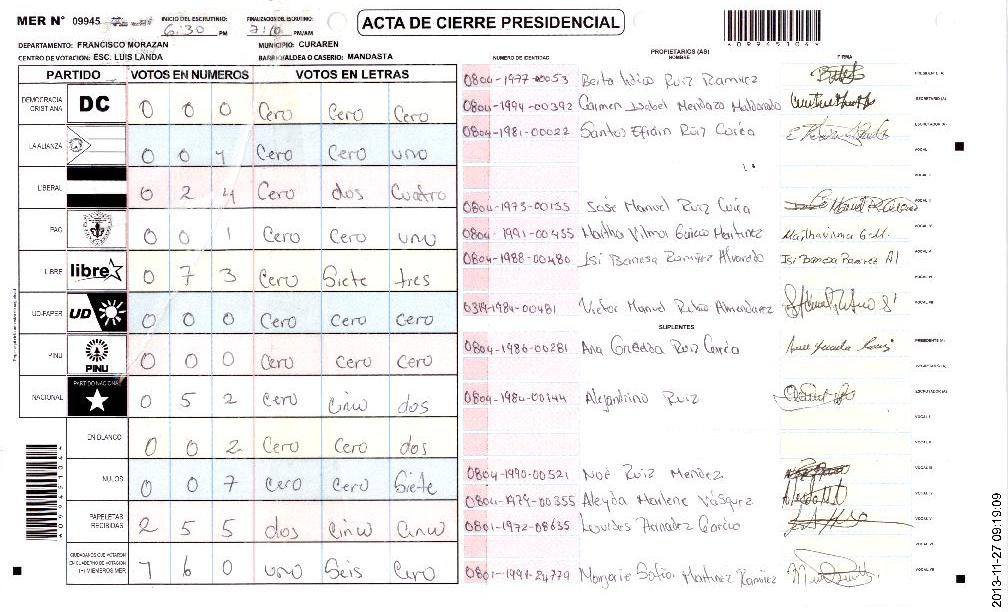 MER N° 09945
INICIO DEL ESCRUTINIO: 6:30 PM
FINALIZACION DEL ESCRUTINIO: PM/AM
ACTA DE CIERRE PRESIDENCIAL
DEPARTAMENTO: FRANCISCO MORAZAN
MUNICIPIO: CURAREN
CENTRO DE VOTACION: ESC. LUIS LANDA
BARRIO/ALDEA O CASERIO: MANDASTA
PARTIDO VOTOS EN NUMEROS VOTOS EN LETRAS
DEMOCRACIA CRISTIANA DC 0 0 0 Cero Cero Cero
LA ALIANZA 0 0 1 Cero Cero uno
LIBERAL 0 2 4 Cero dos Cuatro
PAC 0 0 1 Cero Cero uno
LIBRE libre 0 7 3 Cero Siete tres
UD-FAPER UD 0 0 0 Cero Cero Cero
PINU PINU 0 0 0 Cero Cero Cero
NACIONAL PARTIDO NACIONAL 0 5 2 Cero Cinco dos
EN BLANCO 0 0 2 Cero Cero dos
NULOS 0 0 7 Cero Cero Siete
PAPELETAS RECIBIDAS 2 5 5 dos Cinco Cinco
CIUDADANOS QUE VOTARON EN CUADERNO DE VOTACION (+) MIEMBROS MER 1 6 0 uno Seis Cero
PROPIETARIOS (AS)
NUMERO DE IDENTIDAD NOMBRE FIRMA
0804-1977-00053 Ruiz Ramirez PRESIDENTE (A)
0804-1994-00392 Carmen Isabel Mendoza Maldonado SECRETARIO (A)
0804-1981-00022 Santos Efrain Ruiz Corea ESCRUTADOR (A)
VOCAL I
0804-1973-00135 José Manuel Ruiz VOCAL II
0804-1991-00455 Martha Vilma Garcia Martinez
0804-1988-00480 Isi Banesa Ramirez Alvarado Isi Banesa Ramirez Al
0319-1984-00481 Victor Manuel Rubio Almendarez VOCAL VII
SUPLENTES
0804-1986-00281 Ana Ruiz PRESIDENTE (A)
SECRETARIO (A)
0804-1984-00144 Alejandrino Ruiz ESCRUTADOR (A)
VOCAL I
VOCAL II
0804-1990-00521 Noé Ruiz Mendez VOCAL III
0804-1979-00355 Aleyda Marlene Vásquez
0801-1972-08635 Lourdes Garcia VOCAL V
VOCAL VI
0801-1991-24779 Marjorie Sofia Martinez Ramirez VOCAL VII
099451044
2013-11-27 09:19:09